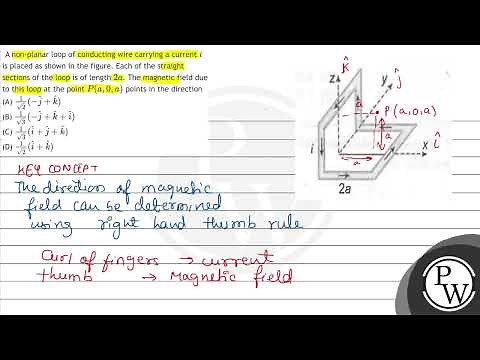 A non-planar loop of conducting wire carrying a current i
is placed as shown in the figure. Each of the straight
sections of the loop is of length 2a. The magnetic field due
to this loop at the point P(a, 0, a) points in the direction
(A) 1/√2 (−ĵ + k̂)
(B) 1/√3 (−ĵ + k̂ + î)
(C) 1/√3 (î + ĵ + k̂)
(D) 1/√2 (î + k̂)
k̂
z
ĵ
y
a
P(a,0,a)
a
i
a
x
î
2a
KEY CONCEPT
The direction of magnetic
field can be determined
using right hand thumb rule
Curl of fingers → current
thumb → Magnetic field
PW